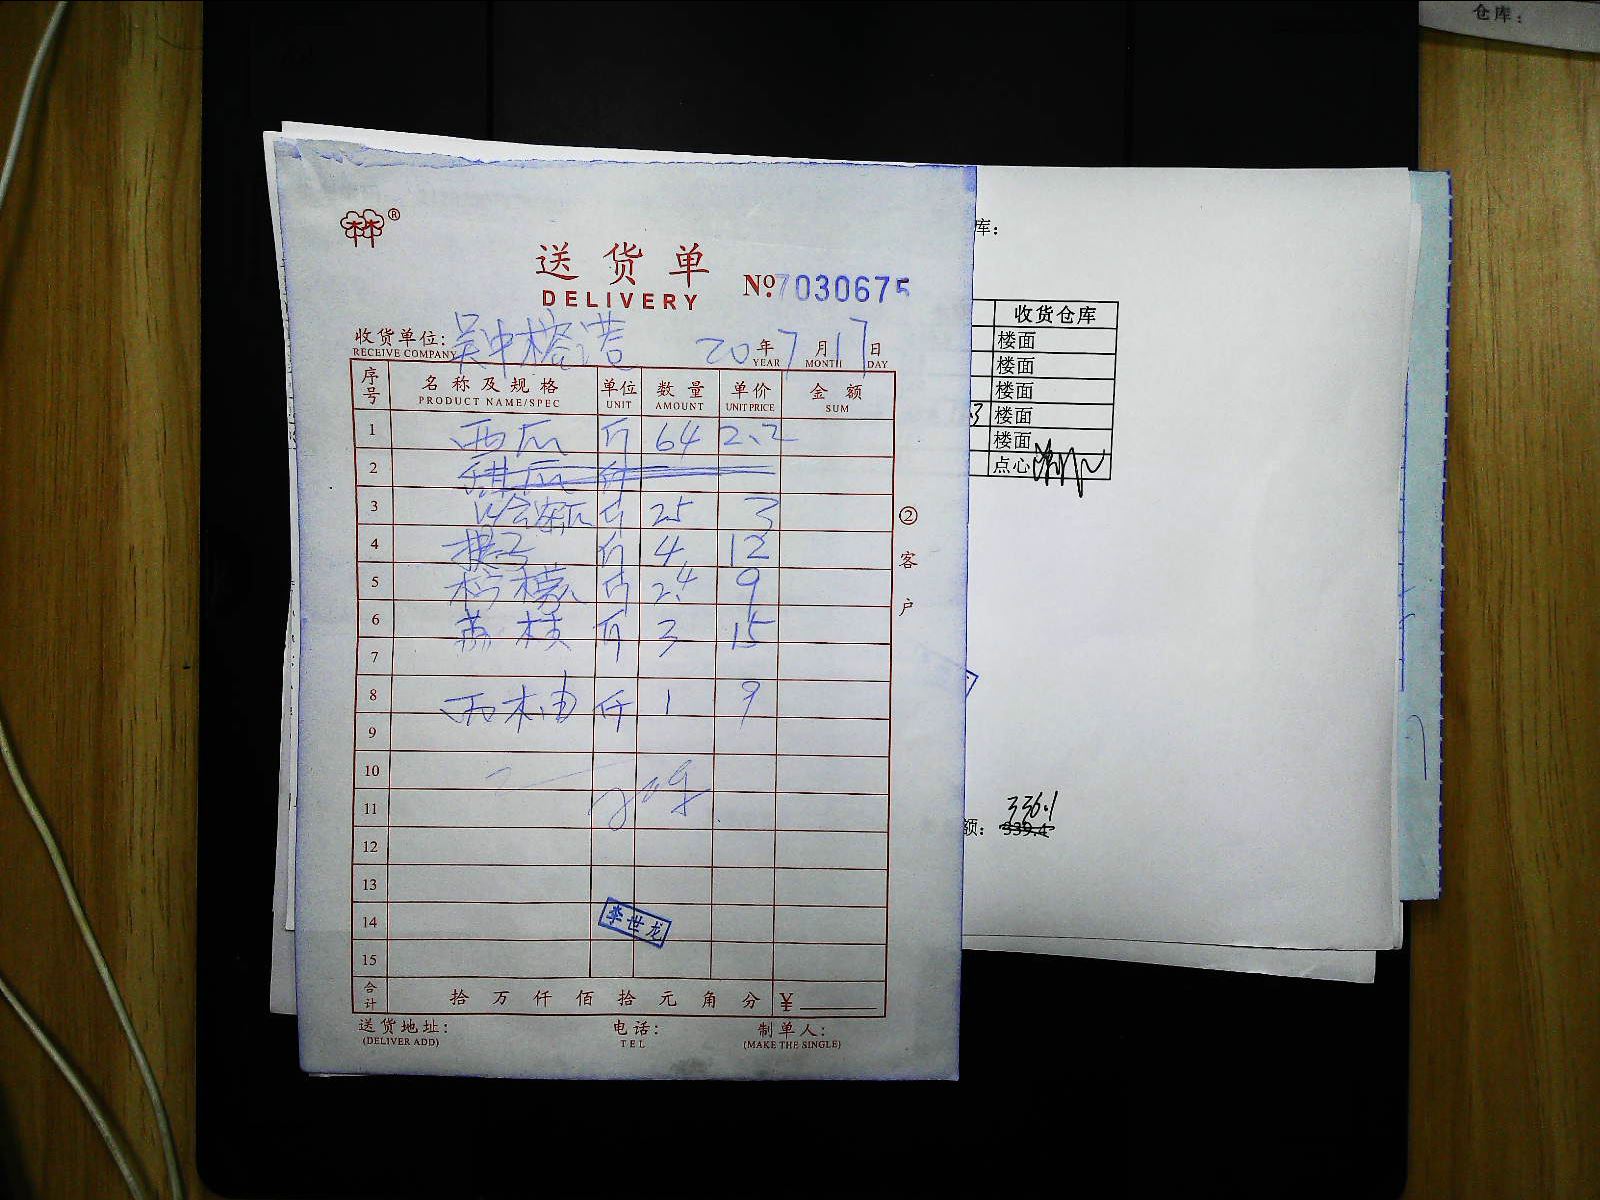 仓库：
®
送货单
DELIVERY
No. 7030675
库：
收货单位：吴中榕港 20年7月17日
RECEIVE COMPANY YEAR MONTH DAY
序号 名称及规格 单位 数量 单价 金额
PRODUCT NAME/SPEC UNIT AMOUNT UNIT PRICE SUM
1 西瓜 斤 64 2.2
2 甜瓜 斤
3 哈密瓜 斤 25 3
4 提子 斤 4 12
5 柠檬 斤 2.4 9
6 荔枝 斤 3 15
7
8 西柚 斤 1 9
9
10
11
12
13
14
15
李世龙
合计 拾万仟佰拾元角分 ¥
送货地址： 电话： 制单人：
(DELIVER ADD) TEL (MAKE THE SINGLE)
②客户
收货仓库
楼面
楼面
楼面
楼面
楼面
点心
336.1
额： 339.4